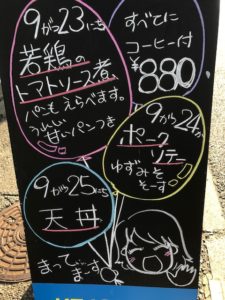 9が23にち
若鶏の
トマトソース煮
パンもえらべます。
うれしい
甘いパンつき
すべてに
コーヒー付
¥880
9から24か
ポーク
ソテー
ゆずみそ
そーす
9から25にち
天丼
まって
まーす